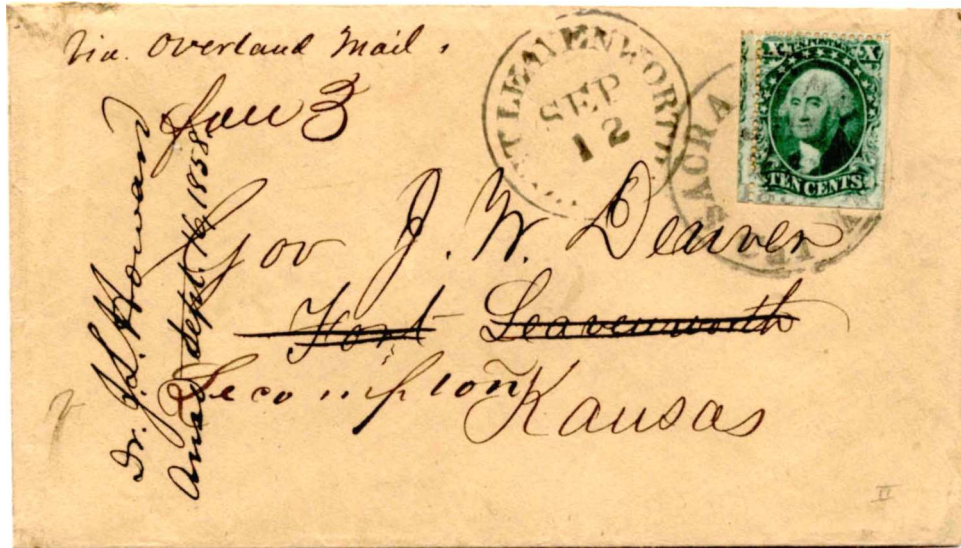 Via. Overland Mail.
FORT LEAVENWORTH
SEP
12
SACRA
X U.S. POSTAGE X
TEN CENTS
3
Gov J. W. Denver
Fort Leavenworth
Lecompton
Kansas
Dr. J. S. Howard
Ansd Sept. 16, 1858
II